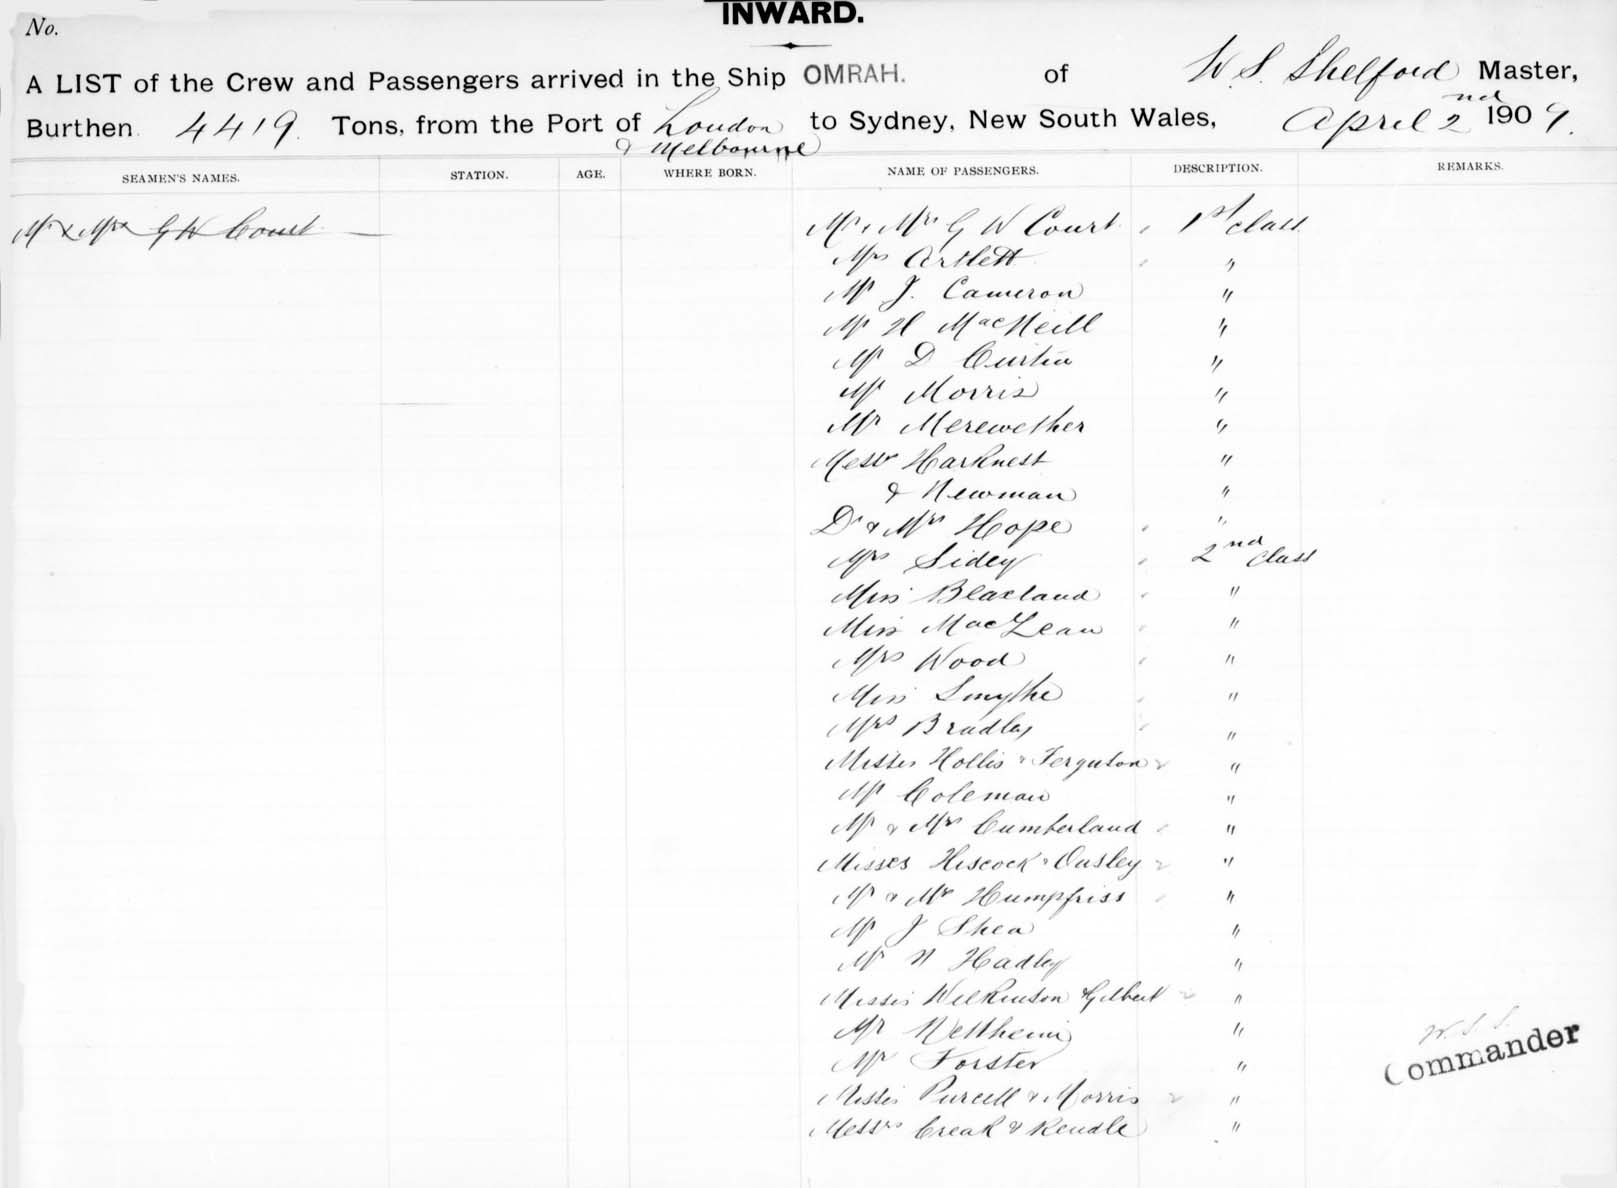 INWARD.
No.
A LIST of the Crew and Passengers arrived in the Ship OMRAH. of W. S. Shelford Master,
Burthen 4419. Tons, from the Port of London & Melbourne to Sydney, New South Wales, April 2nd 1909.
SEAMEN'S NAMES. STATION. AGE. WHERE BORN. NAME OF PASSENGERS. DESCRIPTION. REMARKS.
Mr & Mrs G W Court Mr & Mrs G W Court 1st class
Mrs Artlett "
Mr J. Cameron "
Mr H MacNeill "
Mr D Curtin "
Mr Morris "
Mr Merewether "
Messrs Harkness "
& Newman "
Dr & Mrs Hope "
Mrs Sidey 2nd class
Miss Blaxland "
Miss MacLean "
Mrs Wood "
Miss Smythe "
Mrs Bradley "
Misses Hollis & Ferguson "
Mr Coleman "
Mr & Mrs Cumberland "
Misses Hiscock & Ousley "
Mr & Mrs Humpfriss "
Mr J Shea "
Mr N Hadley "
Misses Wilkinson & Gilbert "
Mr Nettheim "
Mr Forster "
Misses Purcell & Morris "
Messrs Creak & Rendle "
W. S. S.
Commander